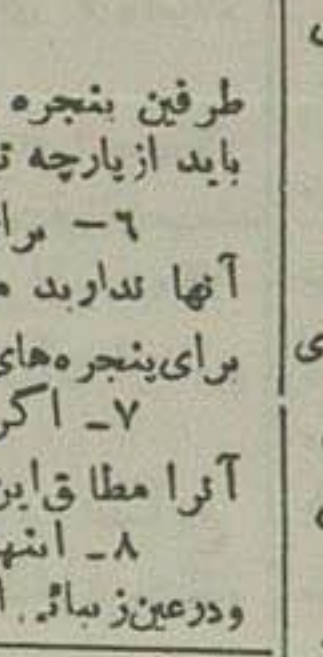 طرفین پنجره
باید از پارچه
٦— برا
آنها ندارید
برای پنجره‌های
۷ـ اگر
آنرا مطابق این
۸ـ
ودرعین زیبائی